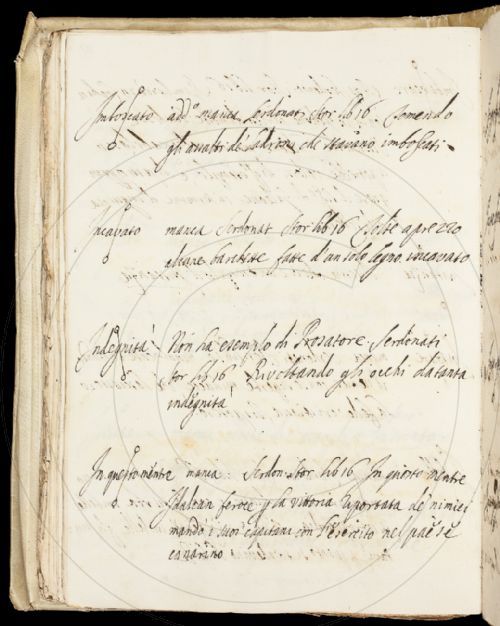 Imboscato add.º manca Serdonat. Stor. lib 16. Temendo
gli assalti de ladroni che stavano imboscati.
Incavato manca Serdonat Stor lib 16 Tolse a prezzo
alcune barchette fatte d'un solo legno incavato
Indegnità Non ha esempio di Prosatore Serdonati
stor lib 16. Rivoltando gli occhi da tanta
indegnita
In questo mentre manca. Serdon. stor lib 16. In questo mentre
Idalcan feroce p la vittoria riportata de nimici
mandò i suoi capitani con l'esercito nel paese
canarino